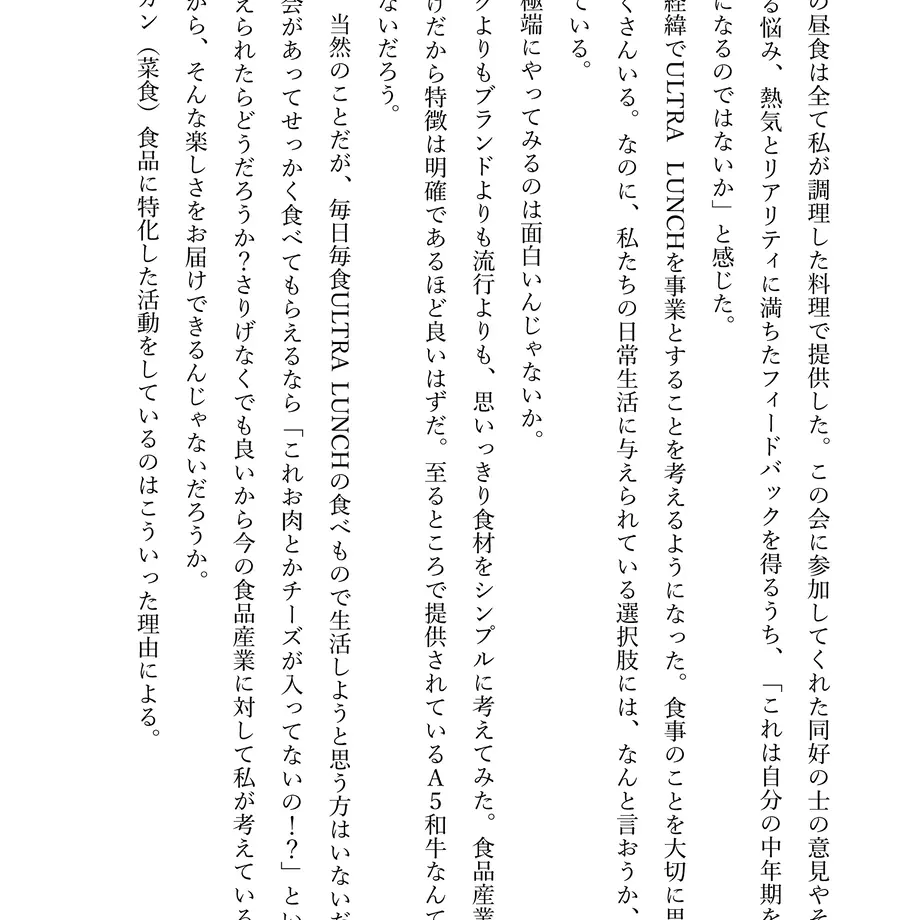 の昼食は全て私が調理した料理で提供した。この会に参加してくれた同好の士の意見やそ
る悩み、熱気とリアリティに満ちたフィードバックを得るうち、「これは自分の中年期を
になるのではないか」と感じた。
経緯でULTRA LUNCHを事業とすることを考えるようになった。食事のことを大切に思
くさんいる。なのに、私たちの日常生活に与えられている選択肢には、なんと言おうか、
ている。
極端にやってみるのは面白いんじゃないか。
クよりもブランドよりも流行よりも、思いっきり食材をシンプルに考えてみた。食品産業
けだから特徴は明確であるほど良いはずだ。至るところで提供されているA5和牛なんて
ないだろう。
当然のことだが、毎日毎食ULTRA LUNCHの食べもので生活しようと思う方はいないだ
会があってせっかく食べてもらえるなら「これお肉とかチーズが入ってないの!?」とい
えられたらどうだろうか?さりげなくでも良いから今の食品産業に対して私が考えている
から、そんな楽しさをお届けできるんじゃないだろうか。
ガン(菜食)食品に特化した活動をしているのはこういった理由による。